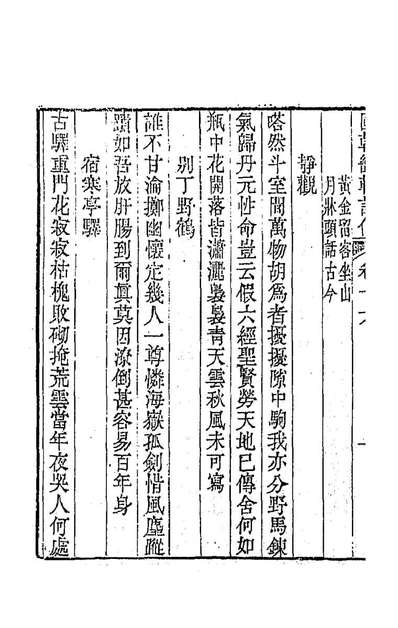 國朝畿輔詩傳 卷十六
黃金留客坐山
月牀頭話古今
靜觀
嗒然斗室間萬物胡爲者擾擾隙中駒我亦分野馬鍊
氣歸丹元性命豈云假六經聖賢勞天地已傳舍何如
瓶中花開落皆瀟灑裊裊青天雲秋風未可寫
別丁野鶴
誰不甘淪擲幽懷定幾人一尊憐海嶽孤劍惜風塵蹤
蹟如吾放肝腸到爾眞莫因潦倒甚容易百年身
宿寒亭驛
古驛重門花寂寂枯槐敗砌掩荒雲當年夜哭人何處